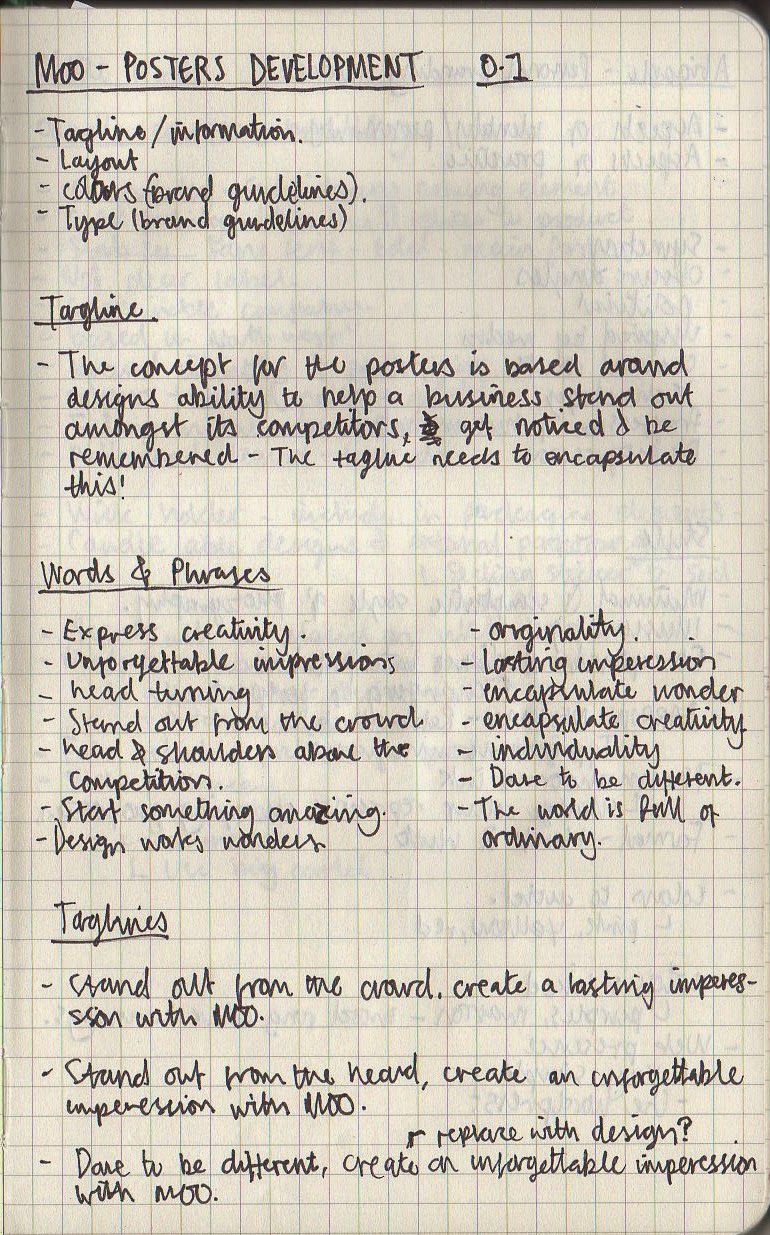 MOO - POSTERS DEVELOPMENT 0.1
- Tagline/information.
- Layout
- colours (brand guidelines).
- Type (brand guidelines)
Tagline.
- The concept for the posters is based around
designs ability to help a business stand out
amongst its competitors, get noticed & be
remembered - The tagline needs to encapsulate
this!
Words & Phrases
- Express creativity.
- Unforgettable impressions
- head turning
- Stand out from the crowd
- head & shoulders above the
competition.
- Start something amazing.
- Design works wonders
- originality.
- Lasting imperession
- encapsulate wonder
- encapsulate creativity
- individuality
- Dare to be different.
- The world is full of
ordinary.
Taglines
- Stand out from the crowd. create a lasting imperes-
sion with MOO.
- Stand out from the heard, create an unforgettable
imperession with MOO.
r replace with design?
- Dare to be different, create an unforgettable imperession
with MOO.